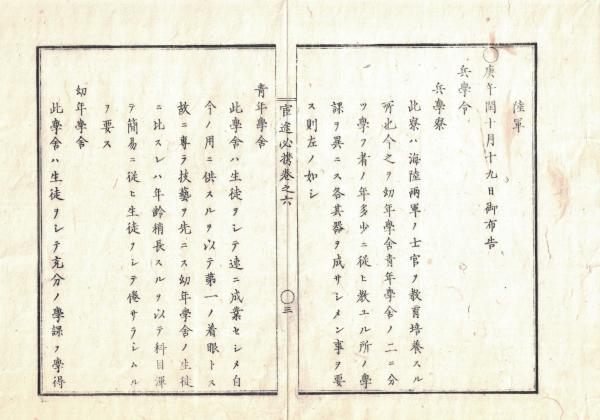 陸軍
〇庚午閏十月十九日御布告
兵學令
兵學寮
此寮ハ海陸兩軍ノ士官ヲ敎育培養スル
所也今之ヲ幼年學舍青年學舍ノ二ニ分
ツ學フ者ノ年多少ニ從ヒ敎ユル所ノ學
課ヲ異ニス各其器ヲ成サシメン事ヲ要
ス則左ノ如シ
官途必攜卷之六
〇三
青年學舍
此學舍ハ生徒ヲシテ速ニ成業セシメ自
今ノ用ニ供スルヲ以テ第一ノ着眼トス
故ニ專ラ技藝ヲ先ニス幼年學舍ノ生徒
ニ比スレハ年齡稍長スルヲ以テ科目渾
テ簡易ニ從ヒ生徒ヲシテ倦サラシムル
ヲ要ス
幼年學舍
此學舍ハ生徒ヲシテ充分ノ學課ヲ學得